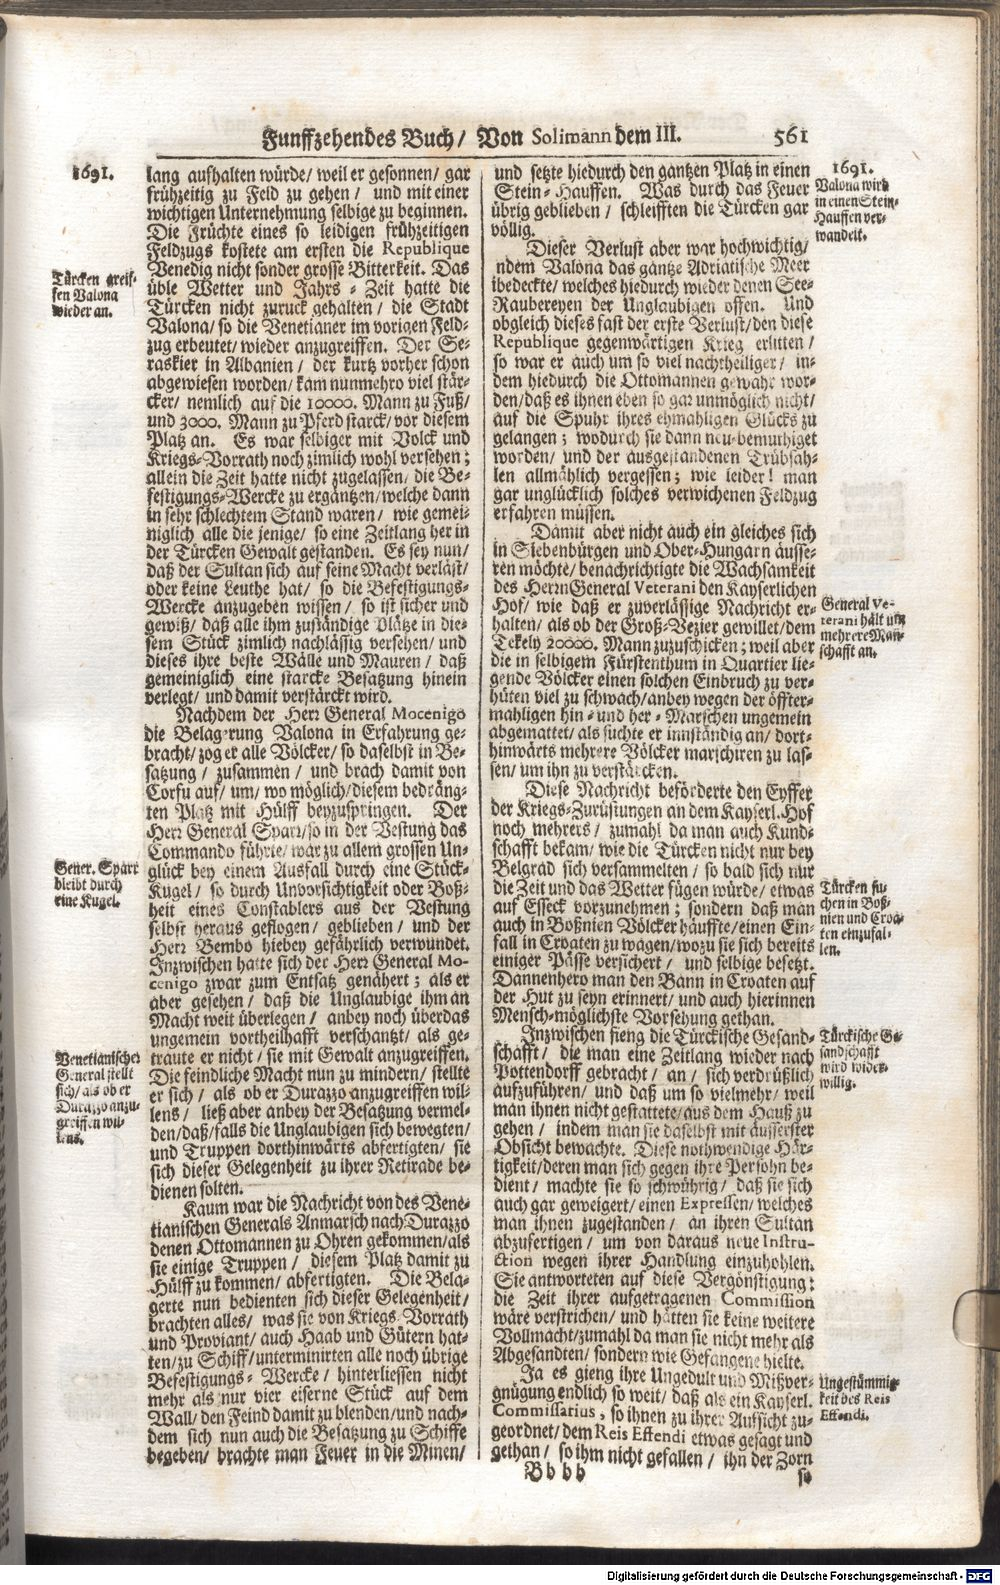 Funffzehendes Buch/ Von Solimann dem III. 561
1691.
lang aufhalten würde/ weil er gesonnen/ gar
frühzeitig zu Feld zu gehen/ und mit einer
wichtigen Unternehmung selbige zu beginnen.
Die Früchte eines so leidigen frühzeitigen
Feldzugs kostete am ersten die Republique
Venedig nicht sonder grosse Bitterkeit. Das
üble Wetter und Jahrs-Zeit hatte die
Türcken nicht zuruck gehalten/ die Stadt
Valona/ so die Venetianer im vorigen Feld-
zug erbeutet/ wieder anzugreiffen. Der Se-
raskier in Albanien/ der kurtz vorher schon
abgewiesen worden/ kam nunmehro viel stär-
cker/ nemlich auf die 10000. Mann zu Fuß/
und 3000. Mann zu Pferd starck/ vor diesem
Platz an. Es war selbiger mit Volck und
Kriegs-Vorrath noch zimlich wohl versehen;
allein die Zeit hatte nicht zugelassen/ die Be-
festigungs-Wercke zu ergäntzen/ welche dann
in sehr schlechtem Stand waren/ wie gemei-
niglich alle die jenige/ so eine Zeitlang her in
der Türcken Gewalt gestanden. Es sey nun/
daß der Sultan sich auf seine Macht verläst/
oder keine Leuthe hat/ so die Befestigungs-
Wercke anzugeben wissen/ so ist sicher und
gewiß/ daß alle ihm zuständige Plätze in die-
sem Stück zimlich nachlässig versehen/ und
dieses ihre beste Wälle und Mauren/ daß
gemeiniglich eine starcke Besatzung hinein
verlegt/ und damit verstärckt wird.
Nachdem der Herr General Mocenigo
die Belagerung Valona in Erfahrung ge-
bracht/ zog er alle Völcker/ so daselbst in Be-
satzung/ zusammen/ und brach damit von
Corfu auf/ um/ wo möglich/ diesem bedräng-
ten Platz mit Hülff beyzuspringen. Der
Herr General Sparr/ so in der Vestung das
Commando führte/ war zu allem grossen Un-
glück bey einem Ausfall durch eine Stück-
Kugel/ so durch Unvorsichtigkeit oder Boß-
heit eines Constablers aus der Vestung
selbst heraus geflogen/ geblieben/ und der
Herr Bembo hiebey gefährlich verwundet.
Inzwischen hatte sich der Herr General Mo-
cenigo zwar zum Entsatz genähert; als er
aber gesehen/ daß die Unglaubige ihm an
Macht weit überlegen/ anbey noch überdas
ungemein vortheilhafft verschantzt/ als ge-
traute er nicht/ sie mit Gewalt anzugreiffen.
Die feindliche Macht nun zu mindern/ stellte
er sich/ als ob er Durazzo anzugreiffen wil-
lens/ ließ aber anbey der Besatzung vermel-
den/ daß/ falls die Unglaubigen sich bewegten/
und Truppen dorthinwärts abfertigten/ sie
sich dieser Gelegenheit zu ihrer Retirade be-
dienen solten.
Kaum war die Nachricht von des Vene-
tianischen Generals Anmarsch nach Durazzo
denen Ottomannen zu Ohren gekommen/ als
sie einige Truppen/ diesem Platz damit zu
Hülff zu kommen/ abfertigten. Die Bela-
gerte nun bedienten sich dieser Gelegenheit/
brachten alles/ was sie von Kriegs-Vorrath
und Proviant/ auch Haab und Gütern hat-
ten/ zu Schiff/ unterminirten alle noch übrige
Befestigungs-Wercke/ hinterliessen nicht
mehr als nur vier eiserne Stück auf dem
Wall/ den Feind damit zu blenden/ und nach-
dem sich nun auch die Besatzung zu Schiffe
begeben/ brachte man Feuer in die Minen/
Türcken greif-
fen Valona
wieder an.
Gener. Sparr
bleibt durch
eine Kugel.
Venetianische
General stellt
sich/ als ob er
Durazzo anzu-
greiffen wil-
lens.
und setzte hiedurch den gantzen Platz in einen
Stein-Hauffen. Was durch das Feuer
übrig geblieben/ schleifften die Türcken gar
völlig.
Dieser Verlust aber war hochwichtig/
indem Valona das gantze Adriatische Meer
bedeckte/ welches hiedurch wieder denen See-
Raubereyen der Unglaubigen offen. Und
obgleich dieses fast der erste Verlust/ den diese
Republique gegenwärtigen Krieg erlitten/
so war er auch um so viel nachtheiliger/ in-
dem hiedurch die Ottomannen gewahr wor-
den/ daß es ihnen eben so gar unmöglich nicht/
auf die Spuhr ihres ehmahligen Glücks zu
gelangen; wodurch sie dann neu-bemuthiget
worden/ und der ausgestandenen Trübsah-
len allmählich vergessen; wie leider! man
gar unglücklich solches verwichenen Feldzug
erfahren müssen.
Damit aber nicht auch ein gleiches sich
in Siebenbürgen und Ober-Hungarn äusse-
ren möchte/ benachrichtigte die Wachsamkeit
des Herrn General Veterani den Kayserlichen
Hof/ wie daß er zuverlässige Nachricht er-
halten/ als ob der Groß-Vezier gewillet/ dem
Tekely 20000. Mann zuzuschicken; weil aber
die in selbigem Fürstenthum in Quartier lie-
gende Völcker einen solchen Einbruch zu ver-
hüten viel zu schwach/ anbey wegen der öffter-
mahligen hin- und her-Marschen ungemein
abgemattet/ als suchte er innständig an/ dort-
hinwärts mehrere Völcker marschiren zu las-
sen/ um ihn zu verstärcken.
Diese Nachricht beförderte den Eyffer
der Kriegs-Zurüstungen an dem Kayserl. Hof
noch mehrers/ zumahl da man auch Kund-
schafft bekam/ wie die Türcken nicht nur bey
Belgrad sich versammelten/ so bald sich nur
die Zeit und das Wetter fügen würde/ etwas
auf Esseck vorzunehmen; sondern daß man
auch in Boßnien Völcker häuffte/ einen Ein-
fall in Croaten zu wagen/ wozu sie sich bereits
einiger Pässe versichert/ und selbige besetzt.
Dannenhero man den Bann in Croaten auf
der Hut zu seyn erinnert/ und auch hierinnen
Mensch-möglichste Vorsehung gethan.
Inzwischen fieng die Türckische Gesand-
schafft/ die man eine Zeitlang wieder nach
Pottendorff gebracht/ an/ sich verdrüßlich
aufzuführen/ und daß um so vielmehr/ weil
man ihnen nicht gestattete/ aus dem Hauß zu
gehen/ indem man sie daselbst mit äusserster
Obsicht bewachte. Diese nothwendige Här-
tigkeit/ deren man sich gegen ihre Persohn be-
dient/ machte sie so schwührig/ daß sie sich
auch gar geweigert/ einen Expressen/ welches
man ihnen zugestanden/ an ihren Sultan
abzufertigen/ um von daraus neue Instru-
ction wegen ihrer Handlung einzuhohlen.
Sie antworteten auf diese Vergönstigung:
die Zeit ihrer aufgetragenen Commission
wäre verstrichen/ und hätten sie keine weitere
Vollmacht/ zumahl da man sie nicht mehr als
Abgesandten/ sondern wie Gefangene hielte.
Ja es gieng ihre Ungedult und Mißver-
gnügung endlich so weit/ daß als ein Kayserl.
Commissarius, so ihnen zu ihrer Aufsicht zu-
geordnet/ dem Reis Effendi etwas gesagt und
gethan/ so ihm nicht gefallen/ ihn der Zorn
Bbbb so
1691.
Valona wird
in einen Stein-
Hauffen ver-
wandelt.
General Ve-
terani hält um
mehrere Man-
schafft an.
Türcken su-
chen in Boß-
nien und Croa-
ten einzufal-
len.
Türckische Ge-
sandschafft
wird wider-
willig.
Ungestümmig-
keit des Reis
Effendi.
Digitalisierung gefördert durch die Deutsche Forschungsgemeinschaft - DFG